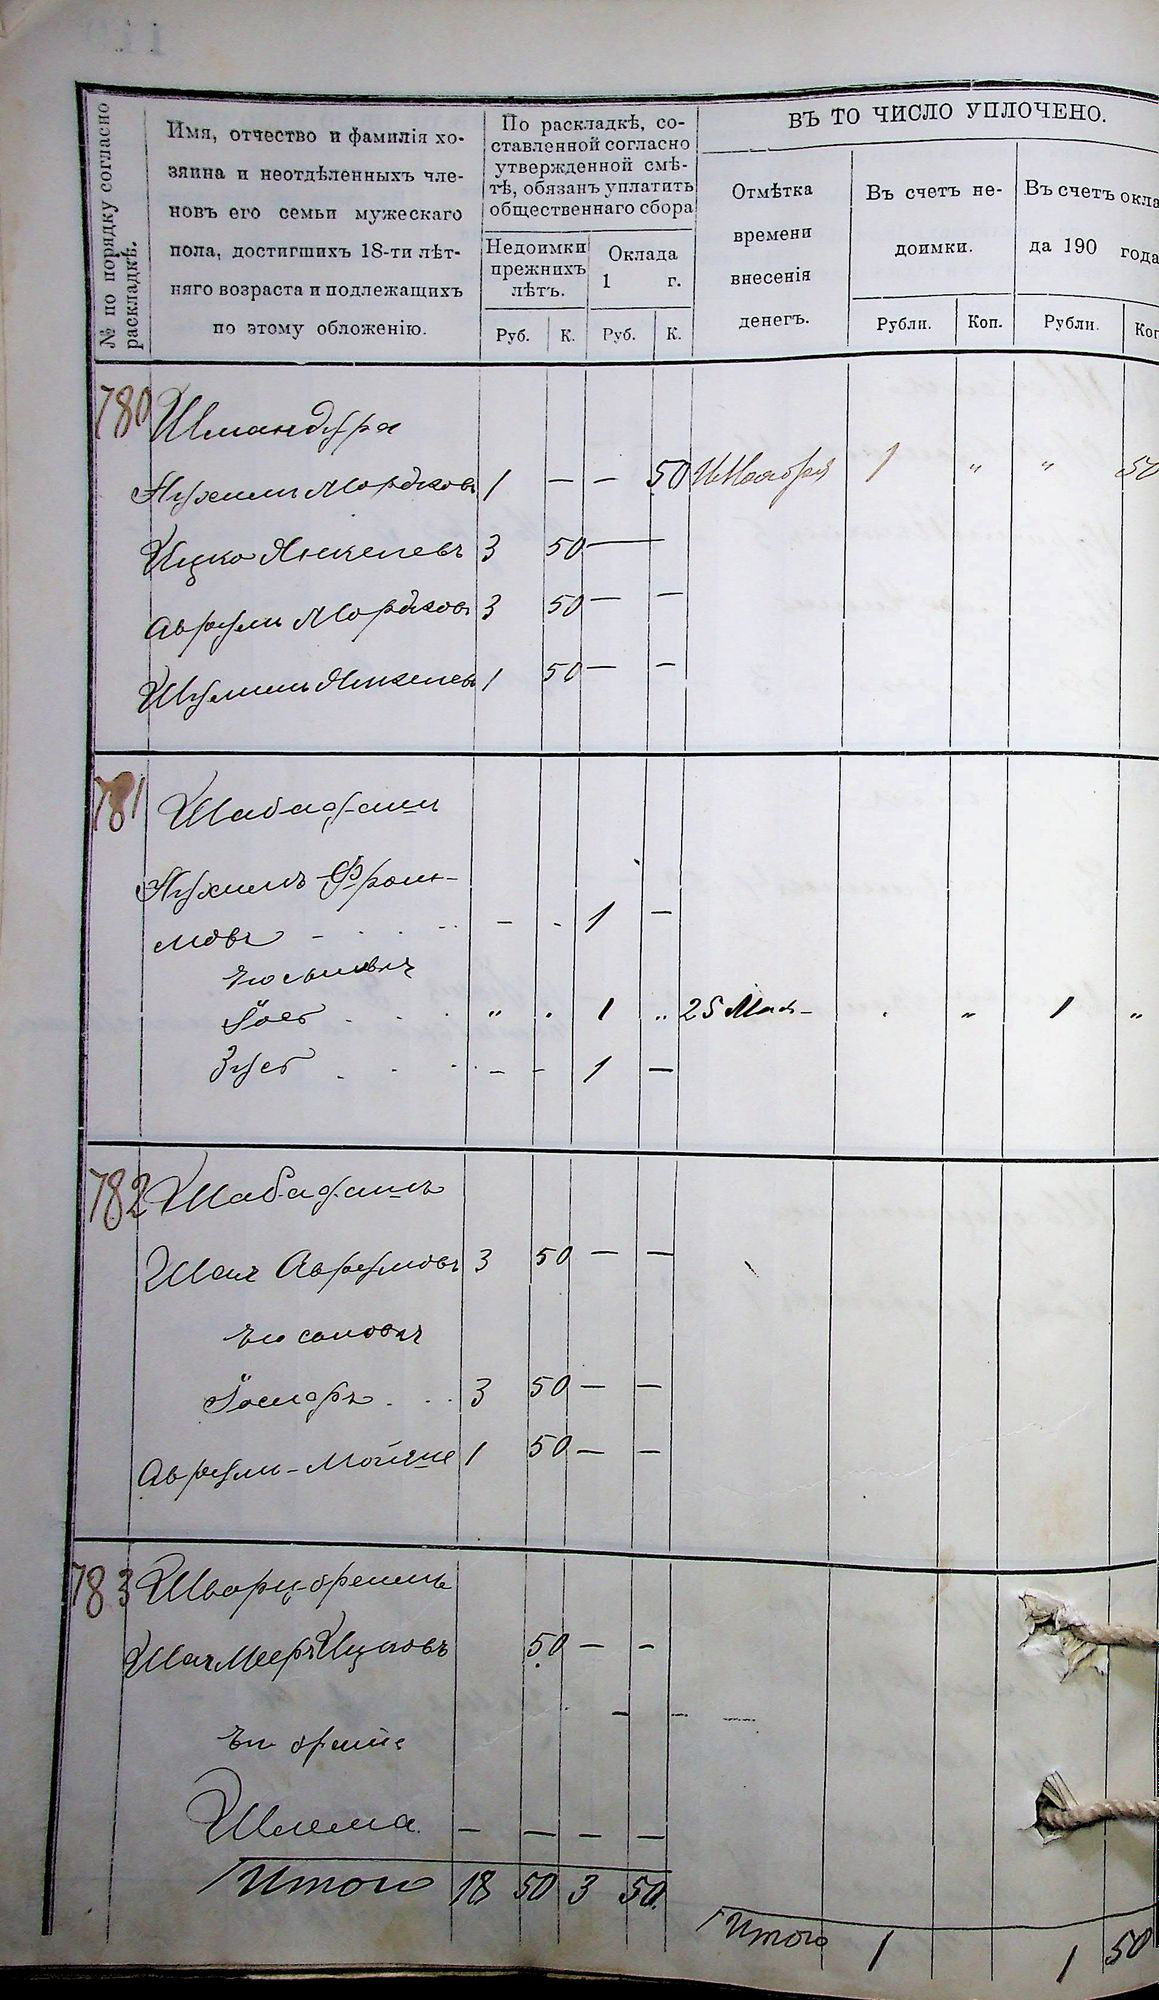 № по порядку согласно раскладкѣ.
Имя, отчество и фамилія хо-
зяина и неотдѣленныхъ чле-
новъ его семьи мужескаго
пола, достигшихъ 18-ти лѣт-
няго возраста и подлежащихъ
по этому обложенію.
По раскладкѣ, со-
ставленной согласно
утвержденной смѣ-
тѣ, обязанъ уплатить
общественнаго сбора
Недоимки
прежнихъ
лѣтъ.
Оклада
1 г.
Руб. К. Руб. К.
ВЪ ТО ЧИСЛО УПЛОЧЕНО.
Отмѣтка
времени
внесенія
денегъ.
Въ счетъ не-
доимки.
Рубли. Коп.
Въ счетъ окла
да 190 года
Рубли. Коп
780 Шмандура
Нухимъ Мордков 1 — — 50 Ноября 1 " " 50
Ицко Янкелевъ 3 50 —
Аврумъ Мордков 3 50 — —
Шулимъ Янкелев 1 50 — —
781 Шабадашъ
Нухимъ Фрои-
мовъ - . 1 —
Его сыновья
Іосъ " . 1 " 25 Мая . " 1 "
Зусь - - 1 —
782 Шабадашъ
Шая Аврумовъ 3 50 — —
Его сыновья
Іосифъ 3 50 — —
Аврумъ-Мойше 1 50 — —
783 Шварцбремъ
Шая Мееръ Ицковъ 50 — —
Его братъ
Шлема — — — —
Итого 18 50 3 50
Итого 1 1 50